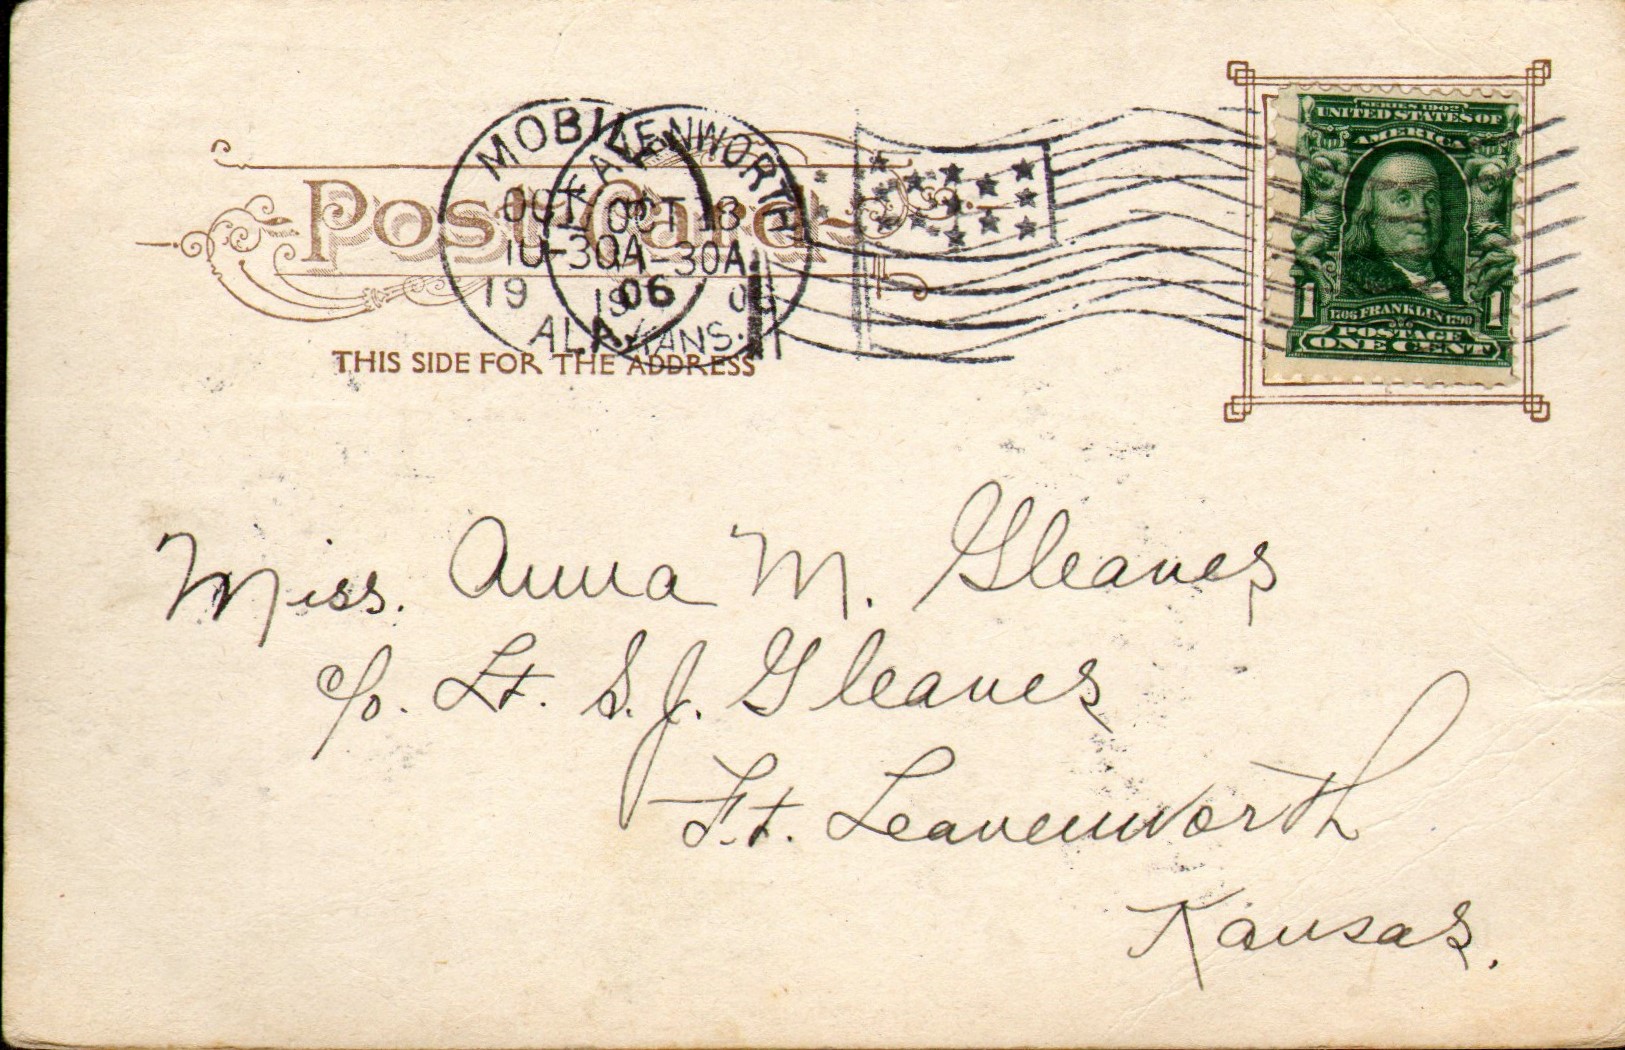 Post Card
MOBILE
OCT
10-30A
19 06
ALA.
LEAVENWORTH
OCT 18
11-30A
19 06
KANS.
THIS SIDE FOR THE ADDRESS
SERIES 1902
UNITED STATES OF
AMERICA
1 1
1706 FRANKLIN 1790
POSTAGE
ONE CENT
Miss. Anna M. Gleaves
c/o. Lt. S. J. Gleaves
Ft. Leavenworth
Kansas.